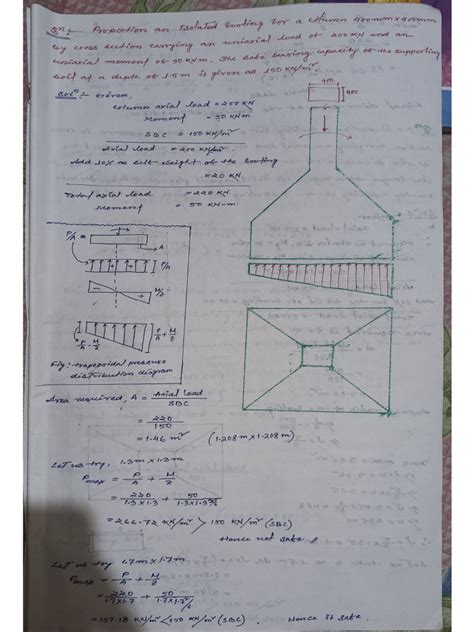 Proportion an Isolated footing for a column 400mm x 400mm
by cross section carrying an uniaxial load of 200 KN and an
uniaxial moment of 50 KNm. The safe bearing capacity of the supporting
soil at a depth of 1.5m is given as 150 KN/m².
Given,
Column axial load = 200 KN
Moment = 50 KNm
SBC = 150 KN/m²
Axial load = 200 KN/m²
Add 10% as self-weight of the footing
= 20 KN.
Total axial load = 220 KN
Moment = 50 KN-m
400
400
P/A =
A
P/A
M/Z
P/A - M/Z
P/A + M/Z
Fig: trapezoidal pressure
distribution diagram
Area required, A = Axial load / SBC
= 220 / 150
= 1.46 m² (1.208 m x 1.208 m)
Let us try, 1.3m x 1.3m
Pmax = P/A + M/Z
= 220 / 1.3 x 1.3 + 50 /
> 150 KN/m² (SBC)
Hence not safe.
Let us try 1.7m x 1.7m
Pmax = P/A + M/Z
= 220 / 1.7 x 1.7 + 50 / 1.7 x 1.7²/6
(SBC). Hence it safe.